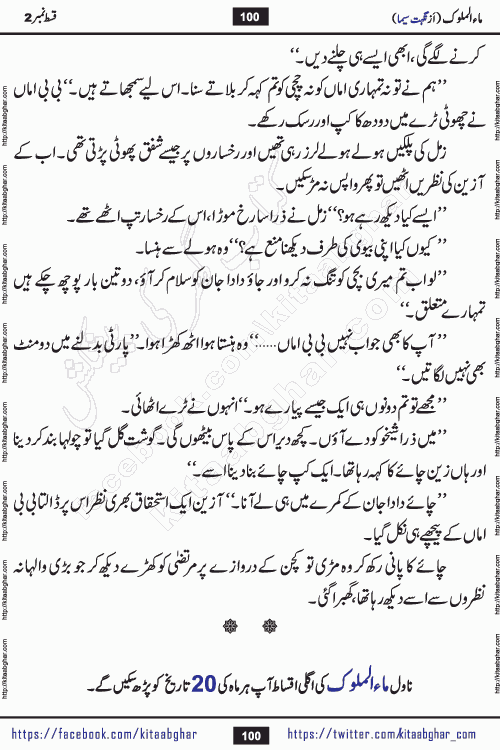 ماء الملوک (از نگہت سیما)
100
قسط نمبر 2
کرنے لگے گی، ابھی ایسے ہی چلنے دیں۔‘‘
’’ہم نے تو نہ تمہاری اماں کو نہ چچی کو تم کہہ کر بلاتے سنا۔ اس لیے سمجھاتے ہیں۔‘‘ بی بی اماں
نے چھوٹی ٹرے میں دودھ کا کپ اور رسک رکھے۔
زمل کی پلکیں ہولے ہولے لرز رہی تھیں اور رخساروں پر جیسے شفق پھوٹی پڑتی تھی۔ اب کے
آزین کی نظریں اٹھیں تو پھر واپس نہ مڑ سکیں۔
’’ایسے کیا دیکھ رہے ہو؟‘‘ زمل نے ذرا سا رخ موڑا، اس کے رخسار تپ اٹھے تھے۔
’’کیوں کیا اپنی بیوی کی طرف دیکھنا منع ہے؟‘‘ وہ ہولے سے ہنسا۔
’’لو اب تم میری بچی کو تنگ نہ کرو اور جاؤ دادا جان کو سلام کر آؤ، دو تین بار پوچھ چکے ہیں
تمہارے متعلق۔‘‘
’’آپ کا بھی جواب نہیں بی بی اماں......‘‘ وہ ہنستا ہوا اٹھ کھڑا ہوا۔ ’’پارٹی بدلنے میں دو منٹ
بھی نہیں لگاتیں۔‘‘
’’مجھے تو تم دونوں ہی ایک جیسے پیارے ہو۔‘‘ انہوں نے ٹرے اٹھائی۔
’’میں ذرا شیخو کو دے آؤں۔ کچھ دیر اس کے پاس بیٹھوں گی۔ گوشت گل گیا تو چولہا بند کر دینا
اور ہاں زین چائے کا کہہ رہا تھا۔ ایک کپ چائے بنا دینا اسے۔‘‘
’’چائے دادا جان کے کمرے میں ہی لے آنا۔‘‘ آزین ایک استحقاق بھری نظر اس پر ڈالتا بی بی
اماں کے پیچھے ہی نکل گیا۔
چائے کا پانی رکھ کر وہ مڑی تو کچن کے دروازے پر مرتضیٰ کو کھڑے دیکھ کر جو بڑی والہانہ
نظروں سے اسے دیکھ رہا تھا، گھبرا گئی۔
ناول ماء الملوک کی اگلی اقساط آپ ہر ماہ کی 20 تاریخ کو پڑھ سکیں گے۔
https://facebook.com/kitaabghar
100
https://twitter.com/kitaabghar_com
http://kitaabghar.com